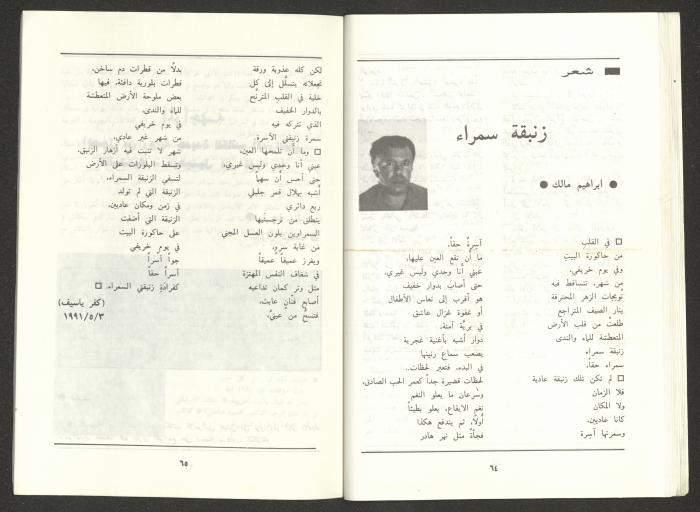 شعر
زنبقة سمراء
● ابراهيم مالك ●
□ في القلب
من حاكورة البيت
وفي يوم خريفي،
من شهر، تتساقط فيه
تويجات الزهر المحترقة
بنار الصيف المتراجع
طلعتْ من قلب الأرض
المتعطشة للماء والندى
زنبقة سمراء
سمراء حقاً.
□ لم تكن تلك زنبقة عادية
فلا الزمان
ولا المكان
كانا عاديين.
وسمرتها آسِرة
آسِرةٌ حقاً.
ما أن تقع العين عليها،
عيني أنا وحدي وليس غيري،
حتى أصابَ بدوار خفيف
هو أقرب إلى نعاس الأطفال
أو غفوة غزال عاشق
في بريّة آمنة.
دوار أشبه بأغنية غجرية
يصعب سماع رنينها
في البدء، فتعبر لحظات..
لحظات قصيرة جداً كعمر الحب الصادق،
وسُرعان ما يعلو النغم
نغم الايقاع، يعلو بطيئاً
أولاً، ثم يندفع هكذا
فجأة مثل نهر هادر
٦٤
لكن كله عذوبة ورقة
تجعلانه يتسلّل إلى كل
خلية في القلب المترنّح
بالدوار الخفيف
الذي تتركه فيه
سمرة زنبقتي الآسرة.
□ وما أن تلمحها العين،
عيني أنا وحدي وليس غيري،
حتى أحس أن سهماً
أشبه بهلال قمر جليلي
ربع دائري
ينطلق من نرجستيها
السمراوين بلون العسل المجني
من غابة سرو،
ويغرز عميقاً عميقاً
في شغاف النفس المهتزة
مثل وتر كمان تداعبه
أصابع فنّان عابث،
فتسحّ من عينيّ،
بدلًا من قطرات دم ساخن،
قطرات بلورية دافئة، فيها
بعض ملوحة الأرض المتعطشة
للماء والندى،
في يوم خريفي
من شهر غير عادي،
شهر لا تنبت فيه أزهار الزنبق،
وتسقط البلورات على الأرض
لتسقي الزنبقة السمراء،
الزنبقة التي لم تولد
في زمن ومكان عاديين،
الزنبقة التي أضفت
على حاكورة البيت
في يوم خريفي
جواً آسراً
آسراً حقاً
كفرادَةِ زنبقتي السمراء. □
(كفر ياسيف)
١٩٩١/٥/٣
٦٥